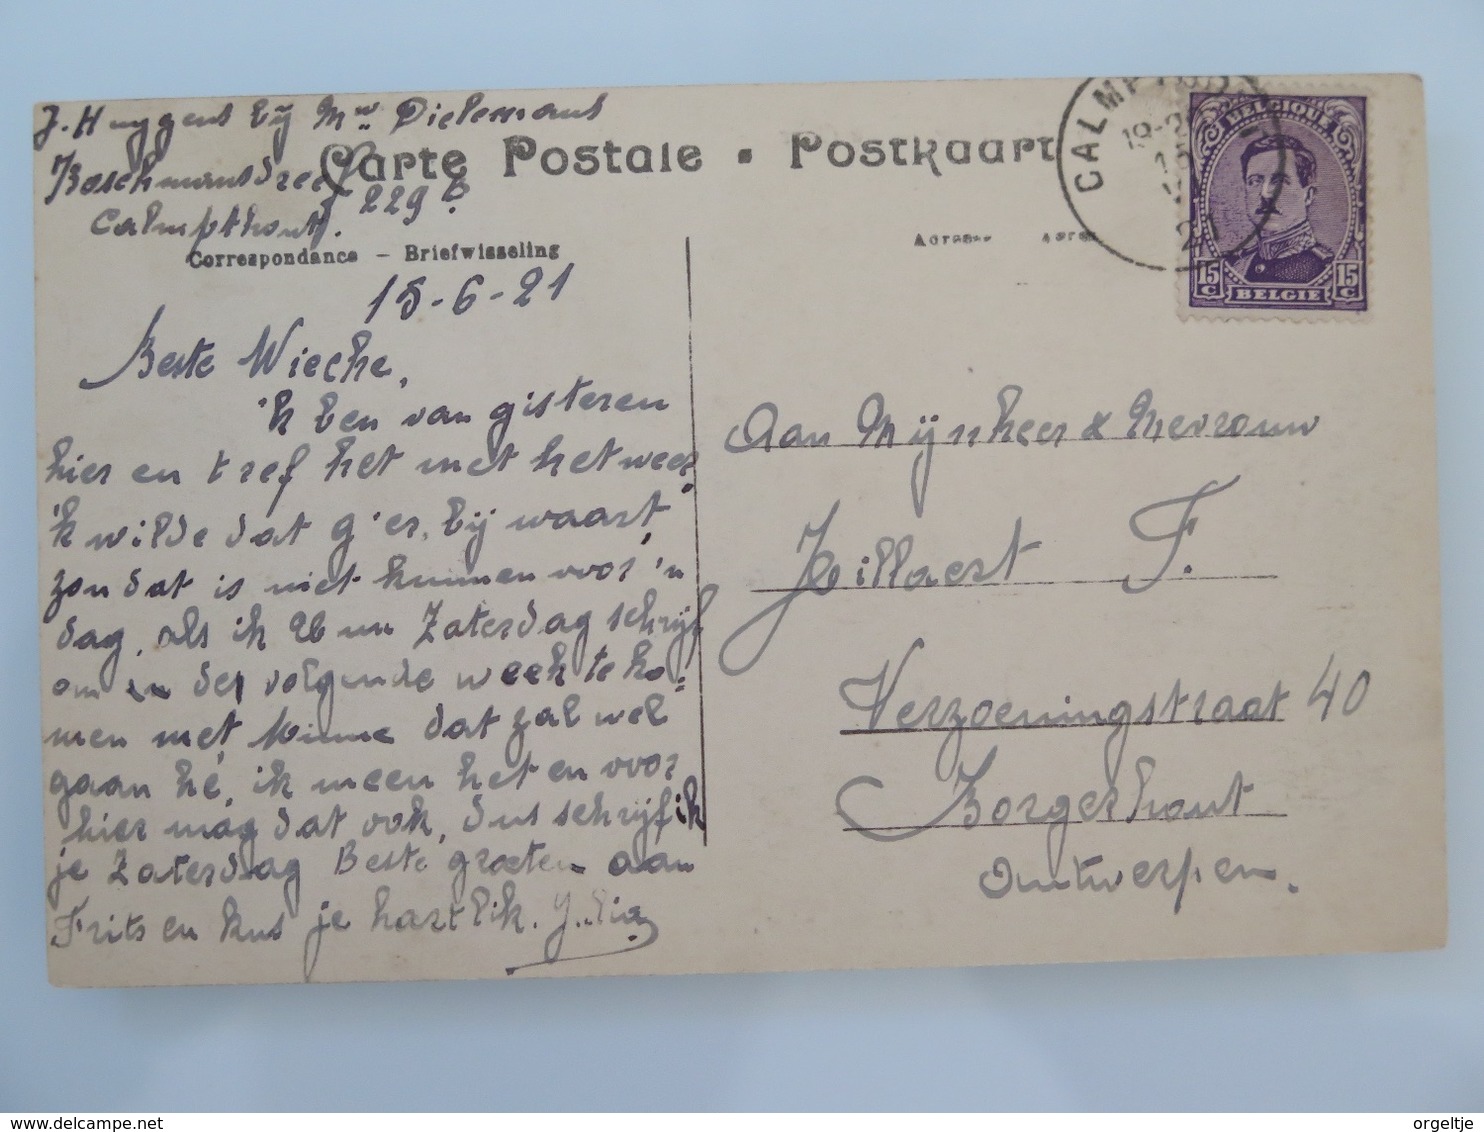 J. Huygens bij Mw Dielemans
Boschmansdreef 229
Calmpthout.
Carte Postale - Postkaart
Correspondance - Briefwisseling
15-6-21
Beste Wieche,
'k ben van gisteren
hier en tref het met het weer,
'k wilde dat g'er bij waart,
zou dat is niet kunnen voor 'n
dag, als ik Zaterdag schrijf
om in de volgende week te ko-
men met Minne dat zal wel
gaan hé, ik meen het en voor
hier mag dat ook, dus schrijf ik
je Zaterdag Beste groeten aan
Frits en kus je hartlik. Julia
CALMPTHOUT
21
BELGIQUE
15 C
15 C
BELGIE
Aan Mijnheer & Mevrouw
Hillaert F.
Verzoeningstraat 40
Borgerhout
Antwerpen.
delcampe.net
orgeltje